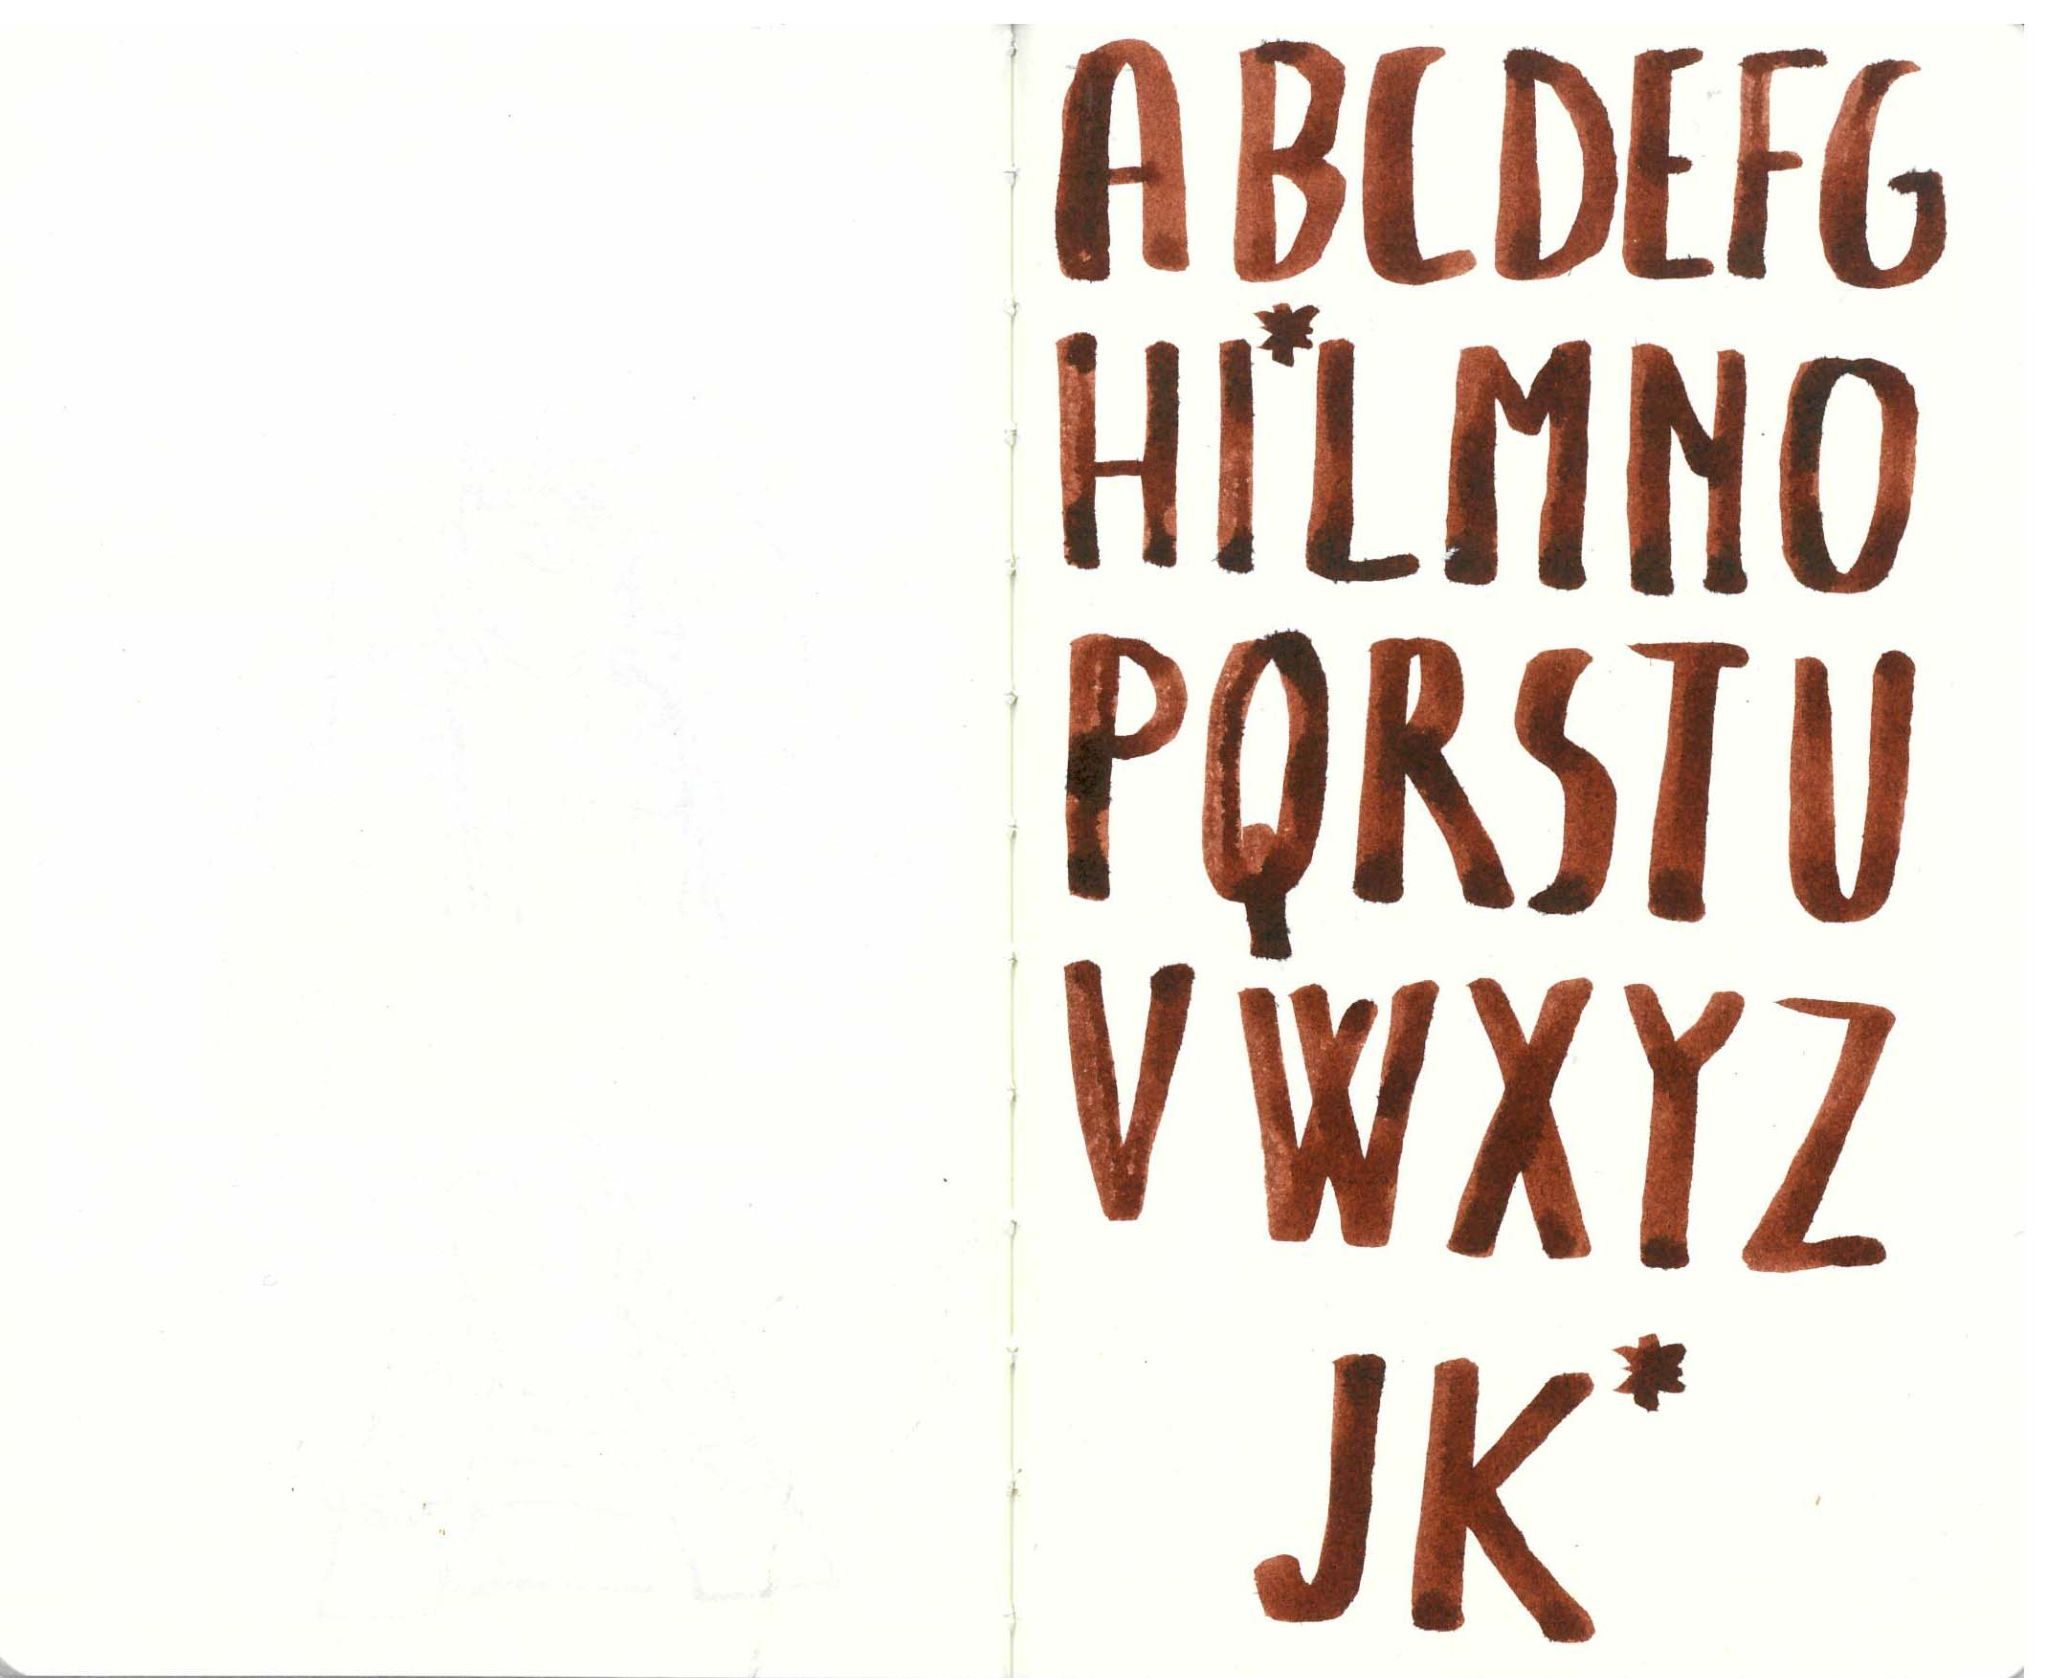 ABCDEFG
HI*LMNO
PQRSTU
VWXYZ
JK*